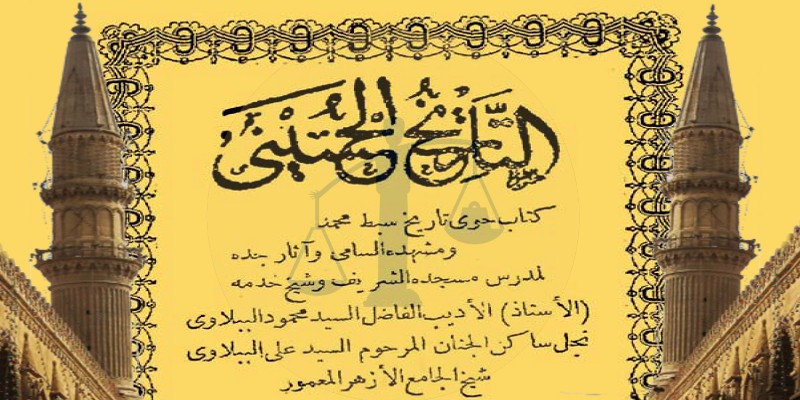 التَّاريخُ الحُسَيْنى
كتاب حوى تاريخ سبط محمد
ومشهده السامى وآثار جده
لمدرس مسجده الشريف وشيخ خدمه
(الأستاذ) الأديب الفاضل السيد محمود الببلاوى
نجل ساكن الجنان المرحوم السيد على الببلاوى
شيخ الجامع الأزهر المعمور